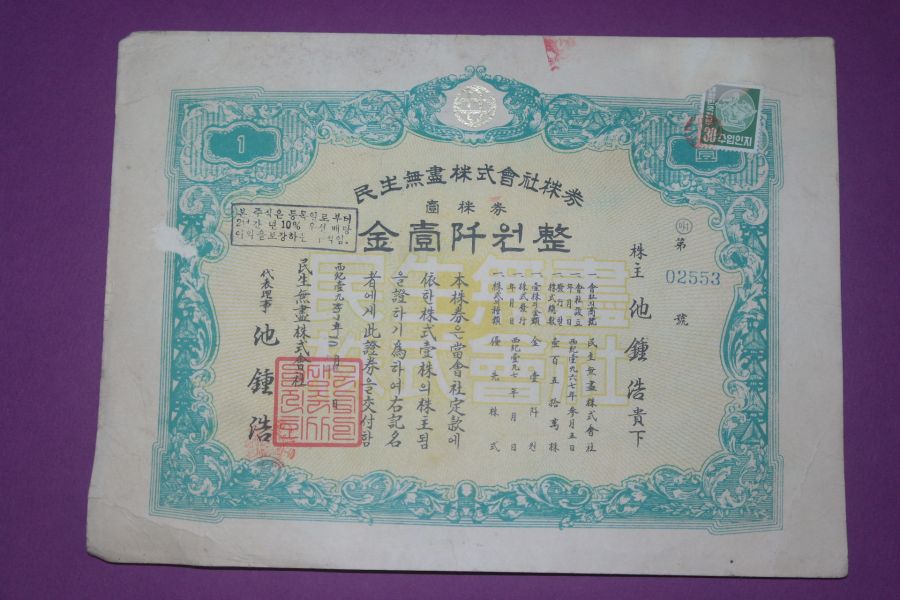 民生無盡株式會社株券
壹株券
金壹阡원整
1
壹
30 수입인지
第
02553
號
株主 池鍾浩 貴下
一 會社의商號 民生無盡株式會社
一 會社設立年月日 西紀壹九六七年參月五日
株式總數 壹百五拾萬株
一 壹株의金額 金壹阡원
一 株式發行年月日 西紀壹九七 年 月 日
一 株式의種類 優先株式
本株券은當會社定款에
依한株式壹株의株主됨
을證하기爲하여右記名
者에게此證券을交付함
西紀壹九 年 月 日
民生無盡株式會社
代表理事 池鍾浩
본 주식은 등록일로부터
간 년 10% 우선 배당
이익을보장하는 식임.
民生無盡
株式會社